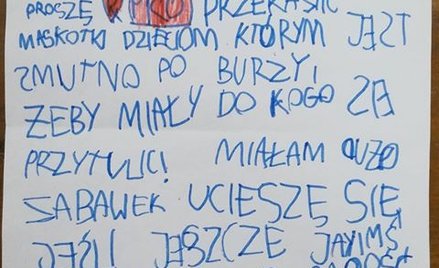 PROSZĘ PRZEKAZAĆ
MASKOTKI DZIECIOM KTÓRYM JEST
SMUTNO PO BURZY,
ŻEBY MIAŁY DO KOGO SIĘ
PRZYTULIĆ! MIAŁAM DUŻO
SABAWEK UCIESZĘ SIĘ,
JEŚLI JESZCZE JAKIMŚ